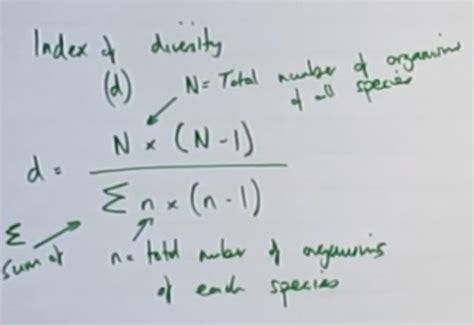 Index of diversity
(d)
N = Total number of organisms
of all species
d = N × (N - 1)
Σ n × (n - 1)
Σ
sum of
n = total number of organisms
of each species